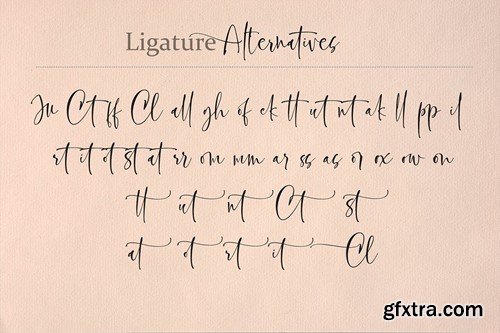 Ligature Alternatives
Ju Ct ff Cl all gh of ek tt ut nt ak ll pp il
rt it ot st at rr om mm ar ss as or ox ow on
tt ut nt Ct st
at ot rt it Cl
gfxtra.com